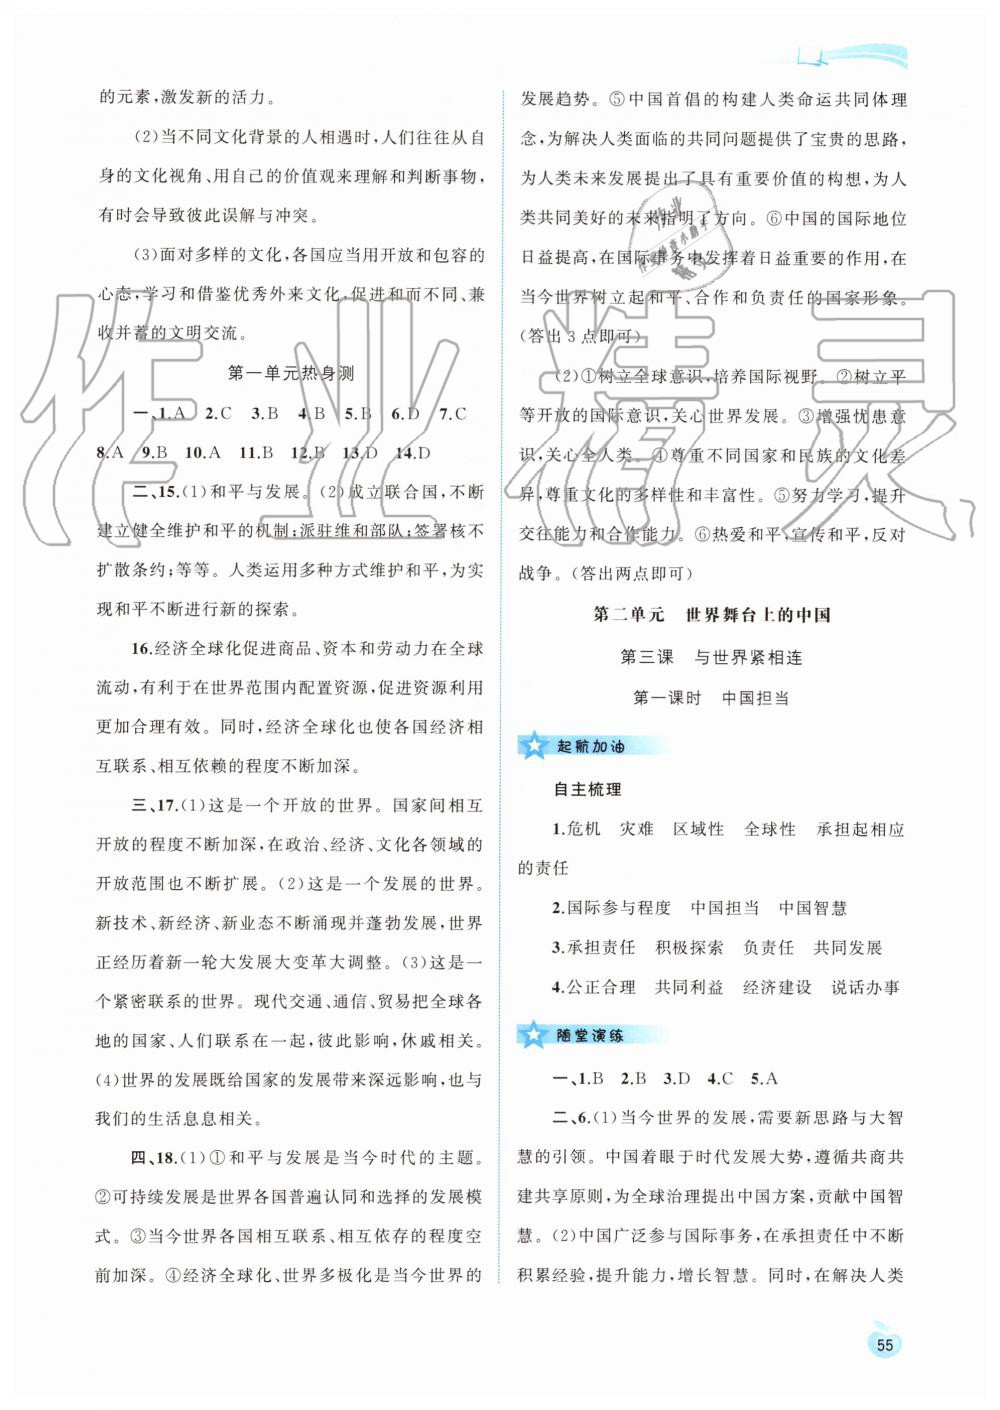 的元素,激发新的活力。
(2)当不同文化背景的人相遇时,人们往往从自
身的文化视角、用自己的价值观来理解和判断事物,
有时会导致彼此误解与冲突。
(3)面对多样的文化,各国应当用开放和包容的
心态,学习和借鉴优秀外来文化,促进和而不同、兼
收并蓄的文明交流。
第一单元热身测
一、1.A 2.C 3.B 4.B 5.B 6.D 7.C
8.A 9.B 10.A 11.B 12.B 13.D 14.D
二、15.(1)和平与发展。(2)成立联合国,不断
建立健全维护和平的机制;派驻维和部队;签署核不
扩散条约;等等。人类运用多种方式维护和平,为实
现和平不断进行新的探索。
16.经济全球化促进商品、资本和劳动力在全球
流动,有利于在世界范围内配置资源,促进资源利用
更加合理有效。同时,经济全球化也使各国经济相
互联系、相互依赖的程度不断加深。
三、17.(1)这是一个开放的世界。国家间相互
开放的程度不断加深,在政治、经济、文化各领域的
开放范围也不断扩展。(2)这是一个发展的世界。
新技术、新经济、新业态不断涌现并蓬勃发展,世界
正经历着新一轮大发展大变革大调整。(3)这是一
个紧密联系的世界。现代交通、通信、贸易把全球各
地的国家、人们联系在一起,彼此影响,休戚相关。
(4)世界的发展既给国家的发展带来深远影响,也与
我们的生活息息相关。
四、18.(1)①和平与发展是当今时代的主题。
②可持续发展是世界各国普遍认同和选择的发展模
式。③当今世界各国相互联系、相互依存的程度空
前加深。④经济全球化、世界多极化是当今世界的
发展趋势。⑤中国首倡的构建人类命运共同体理
念,为解决人类面临的共同问题提供了宝贵的思路,
为人类未来发展提出了具有重要价值的构想,为人
类共同美好的未来指明了方向。⑥中国的国际地位
日益提高,在国际事务中发挥着日益重要的作用,在
当今世界树立起和平、合作和负责任的国家形象。
(答出3点即可)
(2)①树立全球意识,培养国际视野。②树立平
等开放的国际意识,关心世界发展。③增强忧患意
识,关心全人类。④尊重不同国家和民族的文化差
异,尊重文化的多样性和丰富性。⑤努力学习,提升
交往能力和合作能力。⑥热爱和平,宣传和平,反对
战争。(答出两点即可)
第二单元 世界舞台上的中国
第三课 与世界紧相连
第一课时 中国担当
起航加油
自主梳理
1.危机 灾难 区域性 全球性 承担起相应
的责任
2.国际参与程度 中国担当 中国智慧
3.承担责任 积极探索 负责任 共同发展
4.公正合理 共同利益 经济建设 说话办事
随堂演练
一、1.B 2.B 3.D 4.C 5.A
二、6.(1)当今世界的发展,需要新思路与大智
慧的引领。中国着眼于时代发展大势,遵循共商共
建共享原则,为全球治理提出中国方案,贡献中国智
慧。(2)中国广泛参与国际事务,在承担责任中不断
积累经验,提升能力,增长智慧。同时,在解决人类
55
作业精灵